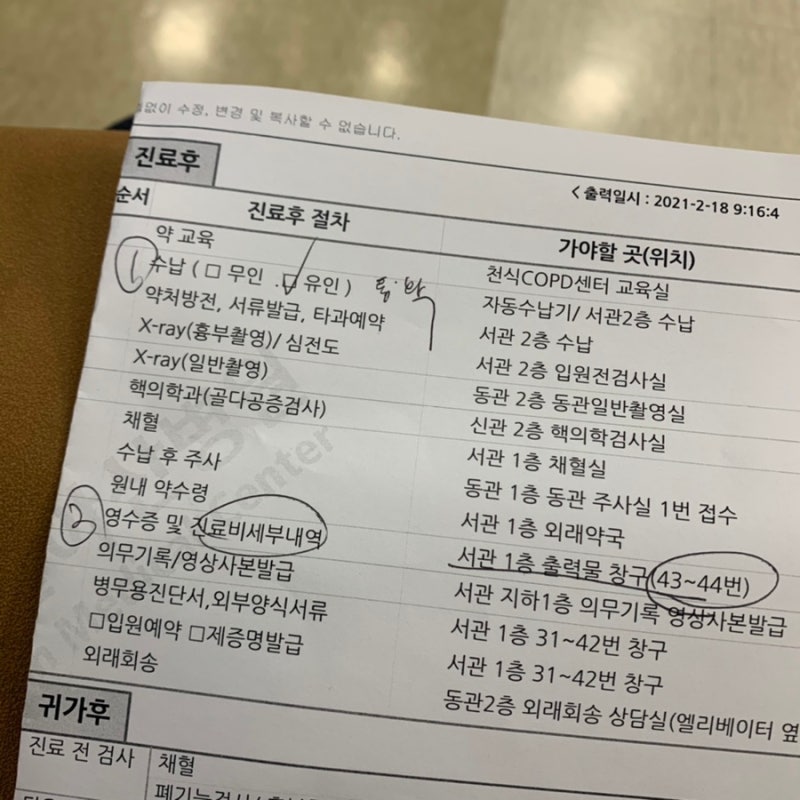 없이 수정, 변경 및 복사할 수 없습니다.
진료후
< 출력일시 : 2021-2-18 9:16:4
순서 진료후 절차 가야할 곳(위치)
약 교육 천식COPD센터 교육실
① 수납 ( ☐ 무인 ☑ 유인 ) 자동수납기/ 서관2층 수납
약처방전, 서류발급, 타과예약 서관 2층 수납
X-ray(흉부촬영)/ 심전도 서관 2층 입원전검사실
X-ray(일반촬영) 동관 2층 동관일반촬영실
핵의학과(골다공증검사) 신관 2층 핵의학검사실
채혈 서관 1층 채혈실
수납 후 주사 동관 1층 동관 주사실 1번 접수
원내 약수령 서관 1층 외래약국
② 영수증 및 진료비세부내역 서관 1층 출력물 창구(43~44번)
의무기록/영상사본발급 서관 지하1층 의무기록 영상사본발급
병무용진단서,외부양식서류 서관 1층 31~42번 창구
☐입원예약 ☐제증명발급 서관 1층 31~42번 창구
외래회송 동관2층 외래회송 상담실(엘리베이터 옆
귀가후
진료 전 검사 채혈